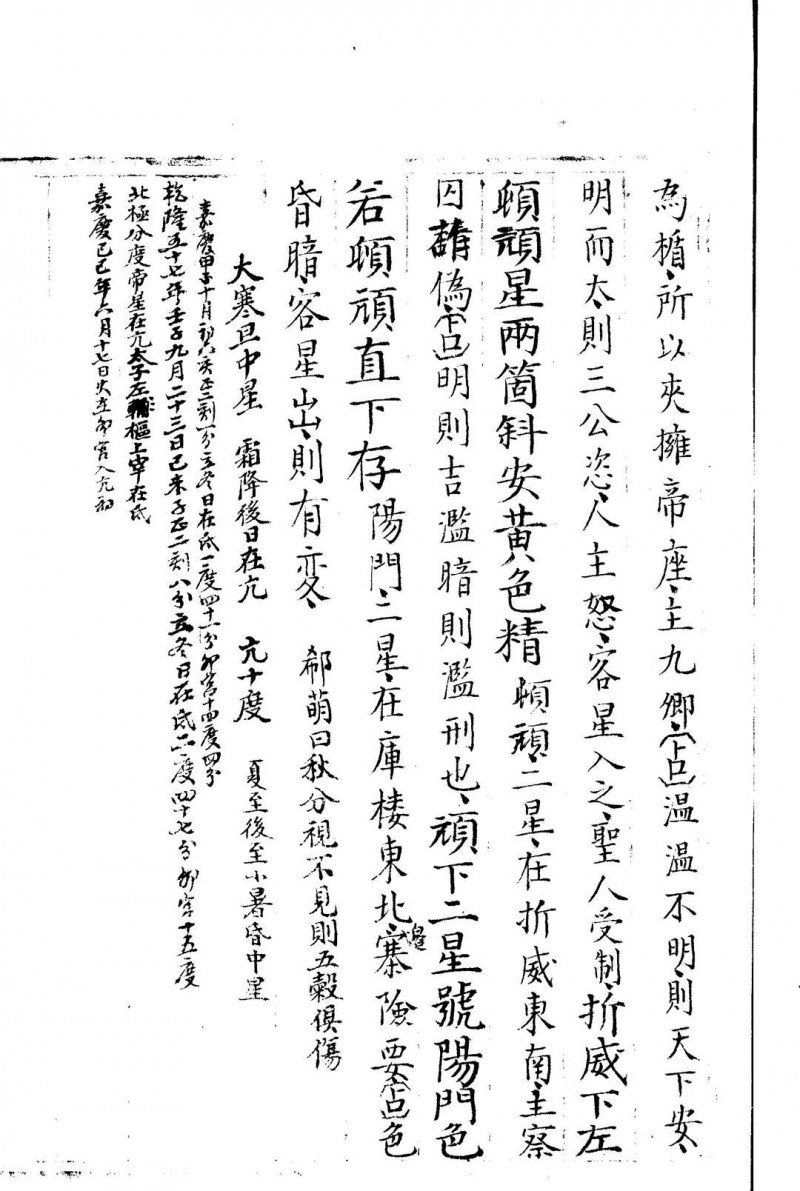 為楯、所以夾擁帝座、主九卿、占溫溫不明、則天下安、
明而大、則三公恣、人主怒、客星入之、聖人受制、折威下左
頓頑星兩箇斜安黃色精 頓頑二星、在折威東南、主察
囚 偽、占明則吉濫暗則濫刑也、頑下二星號陽門色
若頓頑直下存陽門、二星、在庫棲東北、寨邊險要、占色
昏暗、客星出、則有变、 郗萌曰秋分視不見則五穀俱傷
大寒旦中星 霜降後日在亢 亢十度 夏至後至小暑昏中星
嘉慶甲子十月初八 亥正二刻一分立冬日在氐一度四十一分卯宮十四度四分
乾隆五十七年壬子九月二十三日己未子正二刻八分立冬日在氐二度四十七分卯宮十五度
北極分度帝星在亢太子左輔樞上宰在氐
嘉慶己巳年六月十七日火在卯宮入亢初